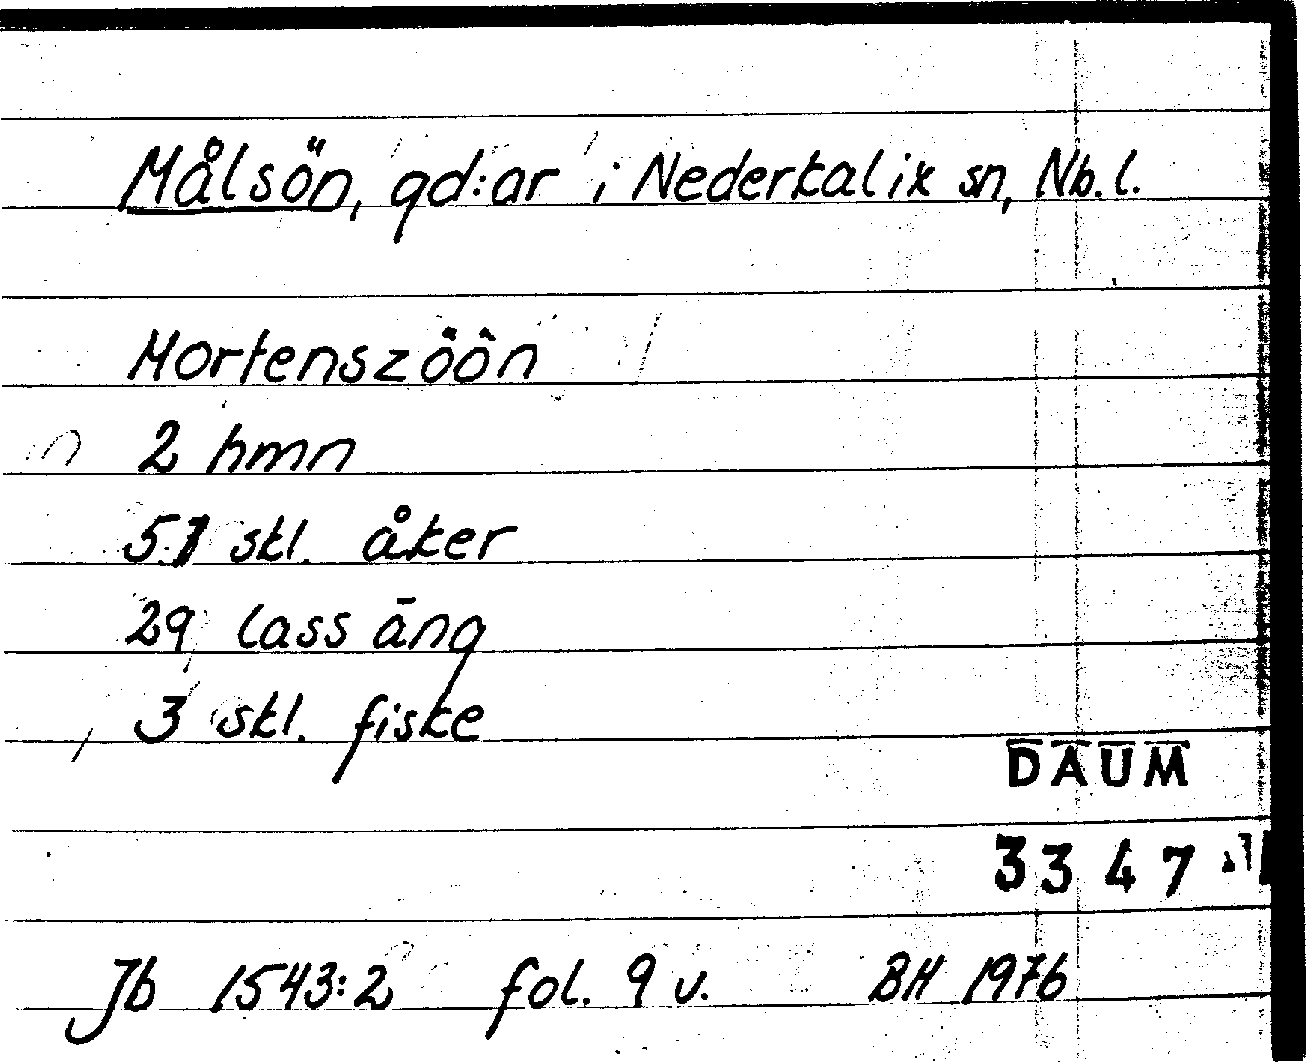 Målsön, gd:ar i Nederkalix sn, Nb.l.
Mortenszöön
2 hmn
5.1 skl. åker
29 lass äng
3 skl. fiske
DAUM
3347
Jb 1543:2 fol. 9 v. BH 1976